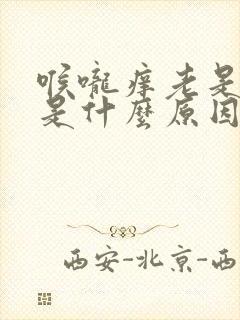 喉嚨痒老是
是什麼原因
西安-北京-西